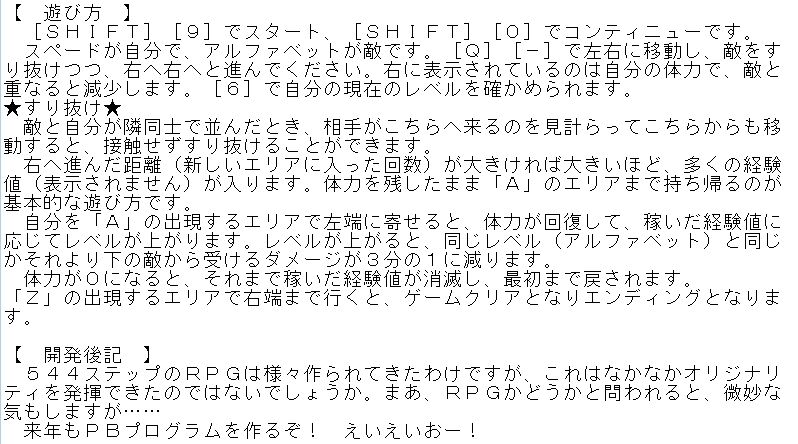 【　遊び方　】
　［ＳＨＩＦＴ］［９］でスタート、［ＳＨＩＦＴ］［０］でコンティニューです。
　スペードが自分で、アルファベットが敵です。［Ｑ］［－］で左右に移動し、敵をす
り抜けつつ、右へ右へと進んでください。右に表示されているのは自分の体力で、敵と
重なると減少します。［６］で自分の現在のレベルを確かめられます。
★すり抜け★
　敵と自分が隣同士で並んだとき、相手がこちらへ来るのを見計らってこちらからも移
動すると、接触せずすり抜けることができます。
　右へ進んだ距離（新しいエリアに入った回数）が大きければ大きいほど、多くの経験
値（表示されません）が入ります。体力を残したまま「Ａ」のエリアまで持ち帰るのが
基本的な遊び方です。
　自分を「Ａ」の出現するエリアで左端に寄せると、体力が回復して、稼いだ経験値に
応じてレベルが上がります。レベルが上がると、同じレベル（アルファベット）と同じ
かそれより下の敵から受けるダメージが３分の１に減ります。
　体力が０になると、それまで稼いだ経験値が消滅し、最初まで戻されます。
「Ｚ」の出現するエリアで右端まで行くと、ゲームクリアとなりエンディングとなりま
す。
【　開発後記　】
　５４４ステップのＲＰＧは様々作られてきたわけですが、これはなかなかオリジナリ
ティを発揮できたのではないでしょうか。まあ、ＲＰＧかどうかと問われると、微妙な
気もしますが……
　来年もＰＢプログラムを作るぞ！　えいえいおー！